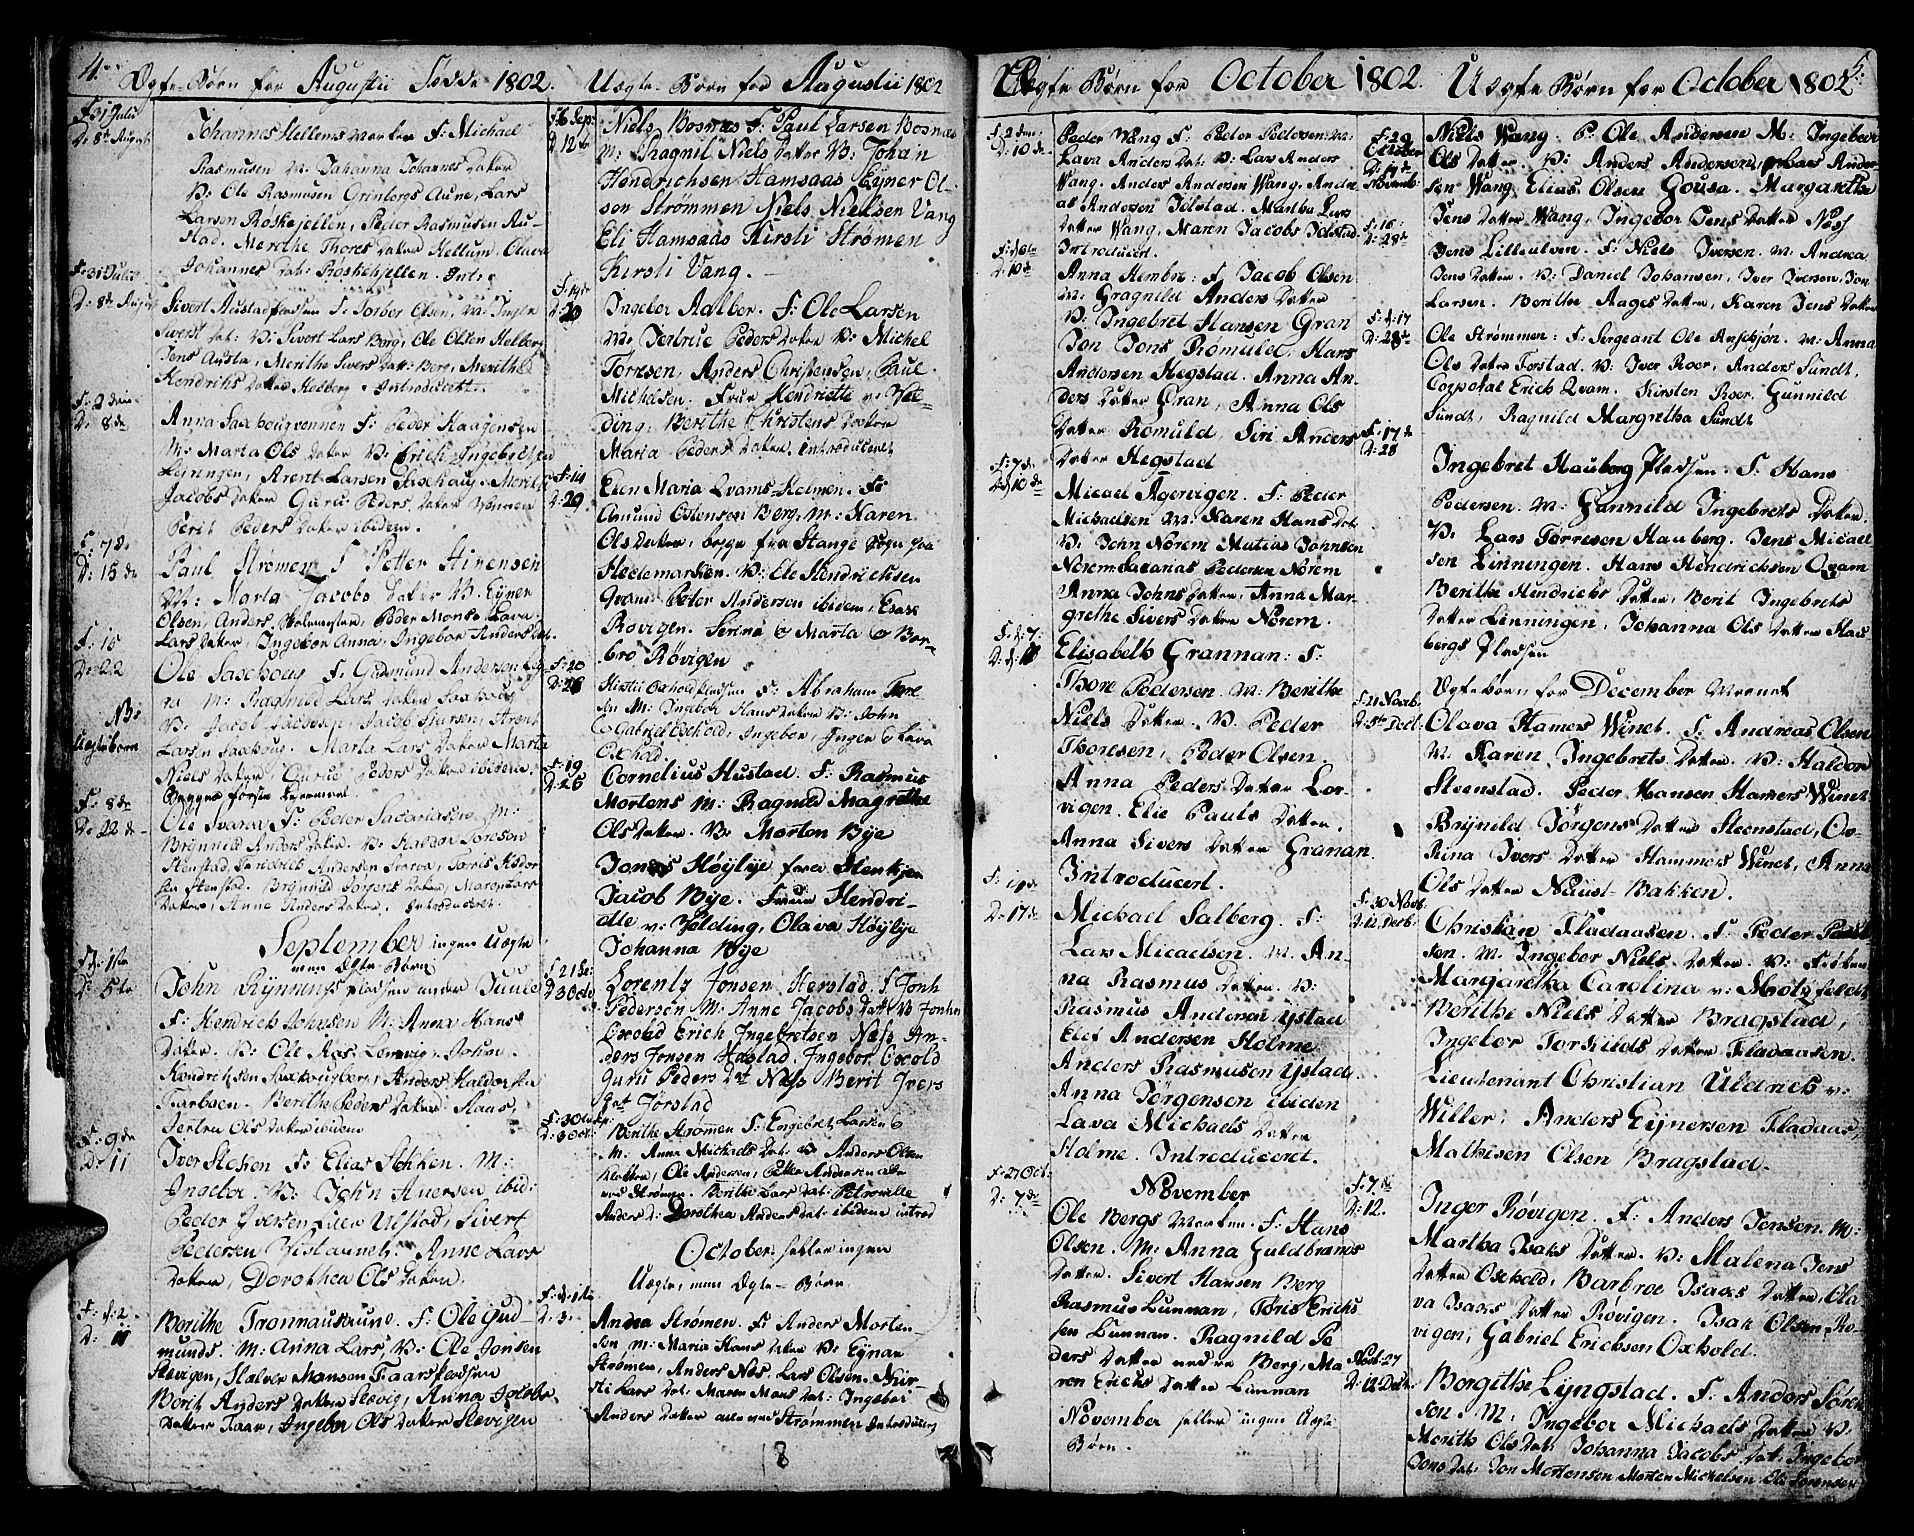 4.
Ægte Børn for Augustii Sodde 1802.
F: 31 Julii
D: 8de August
Johannes Hellems Marken F: Michael
Rasmusen M: Johanna Johannes Datter
V: Ole Rasmusen Grinbergs Aune, Lars
Larsen Roskiellen, Peder Rasmusen Au-
stad. Merethe Thores Datter Hellum, Olava
Johannes Dat: Roskehjellen. Int:
F: 31 Julii
D: 8de August
Sivert Austad
Sivers Dat: V: Sivert Lars Berg, Ole Olsen Helberg
Jens Austa, Merithe Sivers Datt: Berg, Merithe
Hendrichs Datter Helberg. Introduceret.
D: 8de
Anna Saxhougvennen F: Peder Haagensen
M: Maria Ols Datter V: Erich Ingebretsen
Leiringen, Arent Larsen Saxhaug, Merith
Jacobs Datter, Guru Peders Datter Vennen
Berit Peders Datter ibidem.
F: 7de
D: 15de
Paul Strømen F: Petter
M: Marta Jacobs Datter V: Eyner
Olsen, Anders Skolemester, Peder Monsø, Lava
Lars Datter, Ingebor Anna, Ingebor Anders Dat.
F: 15
D: 22
Ole Saxhoug F: Gudmund Andersen
M: Ragnild Lars Datter Saxhoug
V: Jacob Jacobsen, Jacob Iversen, Arent
Larsen Saxhoug. Marta Lars Datter, Marta
Niels Datter, Guru Peders Datter ibidem.
Begges første Leiermaal
NB:
Uægtebarn
F: 8de
D: 22de
Ole Svarva, F: Peder Sacariasen M:
Brynnild Anders Datter. V: Haldor Toresen
Stenstad, Fredrick Andersen Svarva, Joris Haldor
sen Stenstad. Brynnild Jørgens Datter, Maren Lars
Datter, Anne Anders Datter. Introduceret.
September ingen Uægte
men Ægte Børn
F: d: 1ste
D: 5te
John Rynnings Pladsen under Juule
F: Hendrich Johnsen M: Anna Hans
Datter. V: Ole Aas Lorvig, Johan
Hendrichsen Saxhougberg, Anders Haldorsen
Karbøen. Berithe Peders Datter Haas,
Jertru Ols Datter ibidem
F: 9de
D: 11
Iver Stokken F: Elias Stokken. M:
Ingebor. V: John Anersen ibid:
Peder Iversen Lilleulstad, Sivert
Pedersen Vistaunet. Anne Lars
Datter, Dorothea Ols Datter.
F: d: 2
D: 11
Berithe Tronnauskaune. F: Ole Gud-
munds. M: Anna Lars, V: Ole Jonsen
Slevigen, Halver Manson Faarspladsen
Berit Anders Datter Slevig, Anna Jacobs
Datter Faar, Ingebor Ols Datter Slevigen
Uægte Børn for Augustii 1802
F: 6 Sep:
D: 12te
Niels Bosnæs F: Paul Larsen Bosnæs
M: Ragnil Niels Datter V: Johan
Hendrichsen Hamsaas Eyner Ol-
sen Strømmen Niels Nielsen Vang
Eli Hamsaas Kirsti Strømen
Kirsti Vang.
F: 14de
D: 20
Ingebor Aalber. F: Ole Larsen
M: Jertrue Peders Datter V: Michel
Toresen, Anders Christensen, Paul
Michelsen. Frue Hendriette v: Jel-
ding, Berithe Christens Datter
Maria Peders Datter. Introduceret
F: 14
D: 29
Elen Maria Qvams-Holmen. F:
Amund Østensen Berg. M: Karen
Ols Datter, begge fra Stange Sogn paa
Hedemarken. V: Ole Hendrichsen
Qvam Peter Andersen ibidem, Esaæ
Røvigen. Serina & Marta & Bar-
bro Røvigen
F: 20
D: 26
Kirstie Oxhold Pladsen F: Abraham Tore
sen M: Ingebor Hans Datter V: John
& Gabriel Oxhold, Ingebor, Inger & Lava
Oxhold
F: 19
D: 26
Cornelius Hustad. F: Rasmus
Mortens M: Ragnild Magrethe
Ols Datter. V: Morten Bye
Jonas Høylye
Jacob Bye. Fruen Hendri-
dte v: Jelding, Olava Høylye
Johanna Bye
F: 21 Se:
D: 3 Octo
Lorentz Jonsen Herstad. F Jonh
Pedersen M: Anne Jacobs Datt V: Jonhn
Oxold Erich Ingebretsen Næss An-
ders Jonsen Hæstad. Ingebor Oxold
Guru Peders Dat Næss Berit Ivers
Dat Jørstad
D: 3 Oct:
Berithe Strømen F: Engebret Larsen &
M: Anna Michaels Dat: V: Anders Olsen
Kletten, Ole Andersen, Petter Andersen alle
ved Strømen. Berithe Lars Dat: Petronille
Anders D: Dorothea Anders Dat: ibidem introd
October falder ingen
Uægte, men Ægte-Børn.
F: d: 1te
D: 3.
Andrea Strømen. F: Anders Morten
son M: Maria Hans Datter V: Eynar
Strømen, Anders Næs, Lars Olsen, Kir-
sti Lars Dat: Maren Mons Dat: Ingebor
Anders Datter alle ved Strømmen Introduceret
8
Ægte Børn for October 1802.
F: 2den:
D: 10de
Peder Wang F: Peder Pedersen M:
Lava Anders Dat: V: Lars Anders
Wang. Anders Andersen Wang. Andre
as Andersen Idlstad. Martha Lars
Datter Wang, Maren Jacobs Idlstad.
Introduceret.
D: 10de
Anna Hembre F: Jacob Olsen
M: Gragnild Anders Datter
V: Ingebret Hansen Gran
Jon Jons Rømuld. Hans
Andersen Hegstad. Anna An-
ders Datter Gran, Anna Ols
Datter Romuld, Siri Anders
Datter Hegstad
F: 7de
D: 10de
Micael Agervigen. F: Peder
Michaelsen M: Karen Hans Dat:
V: John Norem Matias Johnsen
Norem Sacarias Pedersen Norem
Anna Johns Datter, Anna Mar-
grethe Sivers Datter Norem.
F: d: 7:
Elisabeth Grannan: F:
Thore Pedersen. M: Berithe
Niels Datter. V. Peder
Thoresen, Peder Olsen.
Anna Peders Datter Lor-
vigen. Elie Pauls Datter.
Anna Sivers Datter Granan.
Introducert.
D: 17de
Michael Salberg. F:
Lars Micaelsen. M: An-
na Rasmus Datter. V:
Rasmus Andersen Ystad
Elef Andersen Holme
Anders Rasmusen Ystad
Anna Jørgensen ibiden
Lava Michaels Datter
Holme. Introduceret.
November
F: 27 Oct:
D: 7de
Ole Bergs Marken. F: Hans
Olsen. M: Anna Guldbrands
Datter. Sivert Hansen Berg
Rasmus Lunnan, Tøris Erich
sen Lunnan. Ragnild Pe
ders Datter nedre Berg, Ma
ren Erichs Datter Lunnan
November falder ingen Uægte
Børn.
Uægte Børn for October 1802.
5.
F: 29
October
D: 14de
Novemb
Niels Wang. F: Ole Andersen M: Ingebor
Ols Datter. V: Anders Andersen, Lars Ander
sen Wang Elias Olsen Gousa. Margaretha
Jens Datter Wang, Ingebor Jens Datter Næss
F: 16:
D: 28de
Jens Lilleulven. F: Niels Iversen. M: Andrea
Jens Datter. V: Daniel Johansen, Iver Iversen, Jon
Larsen. Berithe Aages Datter, Karen Jens Datter
F: d: 17
D: 28de
Ole Strømmen: F: Sergeant Ole Anschjøn. M: Anna
Ols Datter Forstad. V: Iver Roer, Anders Sundt,
Corpolal Erich Qvam. Kirsten Roer, Gunnild
Sundt, Ragnild Margretha Sundt
F: 17de
D: 28
Ingebret Hauberg Pladsen. F: Hans
Pedersen. M: Gunnild Ingebrets Datter.
V: Lars Torresen Hauberg. Jens Micael
sen Linningen. Hans Hendrichsen Qvam
Berithe Hindrichs Datter, Berit Ingebrets
Datter Linningen, Johanna Ols Datter Hau
bergs Pladsen
Ægtebørn for December Maanet
F: 21 Novb:
D: 5te Decb:
Olava Hamer Wiinet. F: Andreas Olsen
M: Karen Ingebrets Datter. V: Haldor
Steenstad. Peder Hansen Hamers Winet
Brynild Jørgens Datter Steenstad, Ov-
Rina Ivers Datter Hammers Winet, Anna
Ols Datter Naust-Bakken.
F: 30 Novb.
D: 12 Decb:
Christian Fladaasen. F: Peder Paul
sen. M: Ingebor Niels Datter. V: Frøken
Margaretha Carolina v: Motzfeldt
Berithe Niels Datter Bragstad,
Ingebor Torkilds Datter Fladaasen.
Lieutenant Christian Uldrich v:
Willer, Anders Eynersen Fladaas,
Mathisen Olsen Bragstad.
F: 7de
D: 12.
Inger Røvigen. F: Anders Jensen. M:
Martha Isaks Datter. V: Malena Jens
Datter Oxhold, Barbroe Isacs Datter, Ola
va Isaxs Datter Røvigen. Isak Olsen Rø-
vigen, Gabriel Erichsen Oxhold.
Nov: 27
D: 12 Decb:
Bergithe Lyngstad. F: Anders Søren
son. M: Ingebor Michaels Datter V:
Merith Ols Dat: Johanna Jacobs Dat: Ingebor
Jons Dat: Jon Mortensen Morten Michelsen. Ole Sørensen